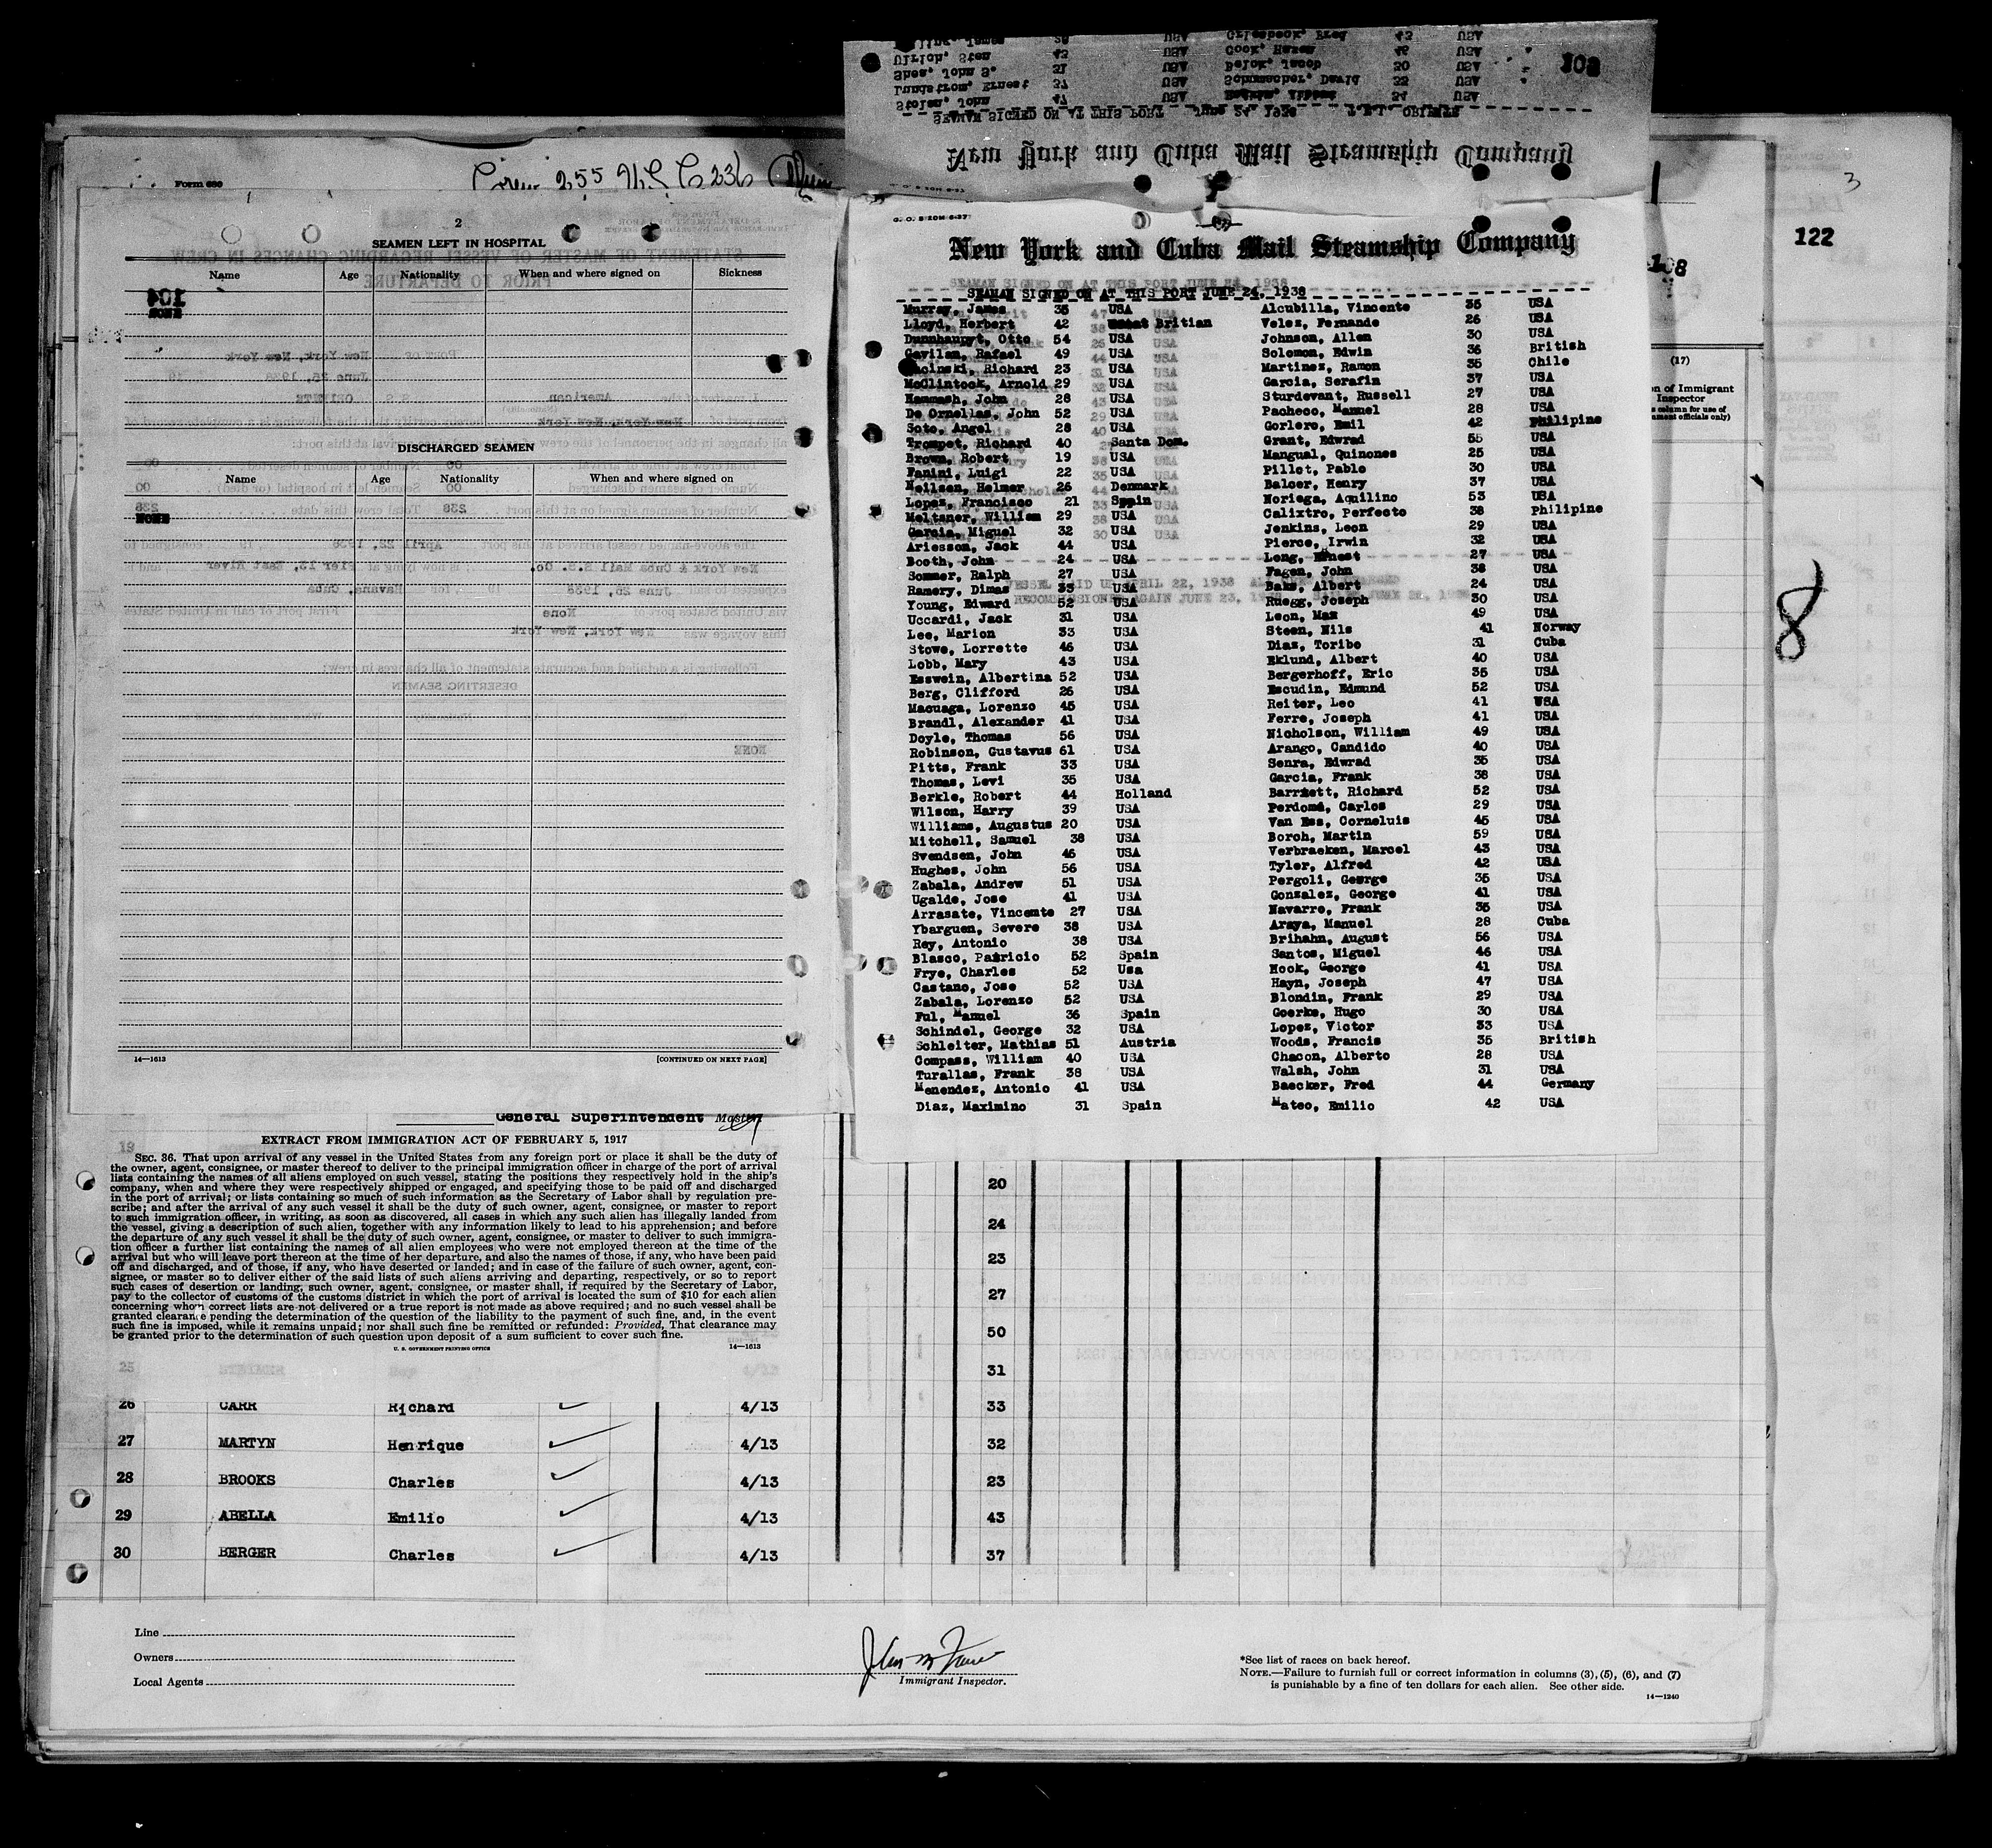 3
122
Form 680
Crew 255
2
SEAMEN LEFT IN HOSPITAL
Name Age Nationality When and where signed on Sickness
NONE
DISCHARGED SEAMEN
Name Age Nationality When and where signed on
NONE
14—1613 [CONTINUED ON NEXT PAGE]
103
SEAMAN SIGNED ON AT THIS PORT June 24, 1938
New York and Cuba Mail Steamship Company
New York and Cuba Mail Steamship Company
SEAMAN SIGNED ON AT THIS PORT JUNE 24, 1938
Murray, James 35 USA Alcubilla, Vincente 35 USA
Lloyd, Herbert 42 Britian Velez, Fernande 26 USA
Dunnhaupyt, Otto 54 USA Johnson, Allen 30 USA
Gavilan, Rafael 49 USA Solomon, Edwin 36 British
Richard 23 USA Martinez, Ramon 35 Chile
McClintock, Arnold 29 USA Garcia, Serafin 37 USA
Hammash, John 28 USA Sturdevant, Russell 27 USA
De Ornellas, John 52 USA Pacheco, Manuel 28 USA
Soto, Angel 28 USA Gorlero, Emil 42 Philipine
Trompet, Richard 40 Santa Dom. Grant, Edwrad 55 USA
Brown, Robert 19 USA Mangual, Quinones 25 USA
Fanini, Luigi 22 USA Pillot, Pablo 30 USA
Neilsen, Helmer 26 Denmark Balcer, Henry 37 USA
Lopez, Francisco 21 Spain Noriega, Aquilino 53 USA
Meltzner, William 29 USA Calixtro, Perfecto 38 Philipine
Garcia, Miguel 32 USA Jenkins, Leon 29 USA
Ariesson, Jack 44 USA Pierce, Irwin 32 USA
Booth, John 24 USA Long, Ernest 27 USA
Sommer, Ralph 27 USA Fagen, John 38 USA
Ramery, Dimas 33 USA Baks, Albert 24 USA
Young, Edward 52 USA Ruegg, Joseph 30 USA
Uccardi, Jack 31 USA Leon, Max 49 USA
Lee, Marion 33 USA Steen, Nils 41 Norway
Stowe, Lorrette 46 USA Diaz, Toribo 31 Cuba
Lobb, Mary 43 USA Eklund, Albert 40 USA
Esswein, Albertina 52 USA Bergerhoff, Eric 35 USA
Berg, Clifford 26 USA Escudin, Edmund 52 USA
Macuaga, Lorenzo 45 USA Reiter, Leo 41 USA
Brandl, Alexander 41 USA Ferre, Joseph 41 USA
Doyle, Thomas 56 USA Nicholson, William 49 USA
Robinson, Gustavus 61 USA Arango, Candido 40 USA
Pitts, Frank 33 USA Senra, Edwrad 35 USA
Thomas, Levi 35 USA Garcia, Frank 38 USA
Berkle, Robert 44 Holland Barrett, Richard 52 USA
Wilson, Harry 39 USA Perdomo, Carlos 29 USA
Williams, Augustus 20 USA Van Ess, Corneluis 45 USA
Mitchell, Samuel 38 USA Borch, Martin 59 USA
Svendsen, John 46 USA Verbraeken, Marcel 43 USA
Hughes, John 56 USA Tyler, Alfred 42 USA
Zabala, Andrew 51 USA Pergoli, George 35 USA
Ugalde, Jose 41 USA Gonzalez, George 41 USA
Arrasate, Vincente 27 USA Navarre, Frank 35 USA
Ybarguen, Severe 38 USA Araya, Manuel 28 Cuba
Rey, Antonio 38 USA Brihahn, August 56 USA
Blasco, Patricio 52 Spain Santos, Miguel 46 USA
Frye, Charles 52 Usa Hook, George 41 USA
Castano, Jose 52 USA Hayn, Joseph 47 USA
Zabala, Lorenzo 52 USA Blondin, Frank 29 USA
Ful, Manuel 36 Spain Goerke, Hugo 30 USA
Schindel, George 32 USA Lopez, Victor 33 USA
Schleiter, Mathias 51 Austria Woods, Francis 35 British
Compass, William 40 USA Chacon, Alberto 28 USA
Turallas, Frank 38 USA Walsh, John 31 USA
Menendez, Antonio 41 USA Baecker, Fred 44 Germany
Diaz, Maximino 31 Spain Mateo, Emilio 42 USA
(17)
n of Immigrant
Inspector
8
General Superintendent Master
EXTRACT FROM IMMIGRATION ACT OF FEBRUARY 5, 1917
SEC. 36. That upon arrival of any vessel in the United States from any foreign port or place it shall be the duty of
the owner, agent, consignee, or master thereof to deliver to the principal immigration officer in charge of the port of arrival
lists containing the names of all aliens employed on such vessel, stating the positions they respectively hold in the ship's
company, when and where they were respectively shipped or engaged, and specifying those to be paid off and discharged
in the port of arrival; or lists containing so much of such information as the Secretary of Labor shall by regulation pre-
scribe; and after the arrival of any such vessel it shall be the duty of such owner, agent, consignee, or master to report
to such immigration officer, in writing, as soon as discovered, all cases in which any such alien has illegally landed from
the vessel, giving a description of such alien, together with any information likely to lead to his apprehension; and before
the departure of any such vessel it shall be the duty of such owner, agent, consignee, or master to deliver to such immigra-
tion officer a further list containing the names of all alien employees who were not employed thereon at the time of the
arrival but who will leave port thereon at the time of her departure, and also the names of those, if any, who have been paid
off and discharged, and of those, if any, who have deserted or landed; and in case of the failure of such owner, agent, con-
signee, or master so to deliver either of the said lists of such aliens arriving and departing, respectively, or so to report
such cases of desertion or landing, such owner, agent, consignee, or master shall, if required by the Secretary of Labor,
pay to the collector of customs of the customs district in which the port of arrival is located the sum of $10 for each alien
concerning whom correct lists are not delivered or a true report is not made as above required; and no such vessel shall be
granted clearance pending the determination of the question of the liability to the payment of such fine, and, in the event
such fine is imposed, while it remains unpaid; nor shall such fine be remitted or refunded: Provided, That clearance may
be granted prior to the determination of such question upon deposit of a sum sufficient to cover such fine.
U. S. GOVERNMENT PRINTING OFFICE 14—1613
20
24
23
27
50
31
26 CARR Richard 4/13 33
27 MARTYN Henrique 4/13 32
28 BROOKS Charles 4/13 23
29 ABELLA Emilio 4/13 43
30 BERGER Charles 4/13 37
Line
Owners
Local Agents
Immigrant Inspector.
*See list of races on back hereof.
NOTE.—Failure to furnish full or correct information in columns (3), (5), (6), and (7)
is punishable by a fine of ten dollars for each alien. See other side.
14—1240